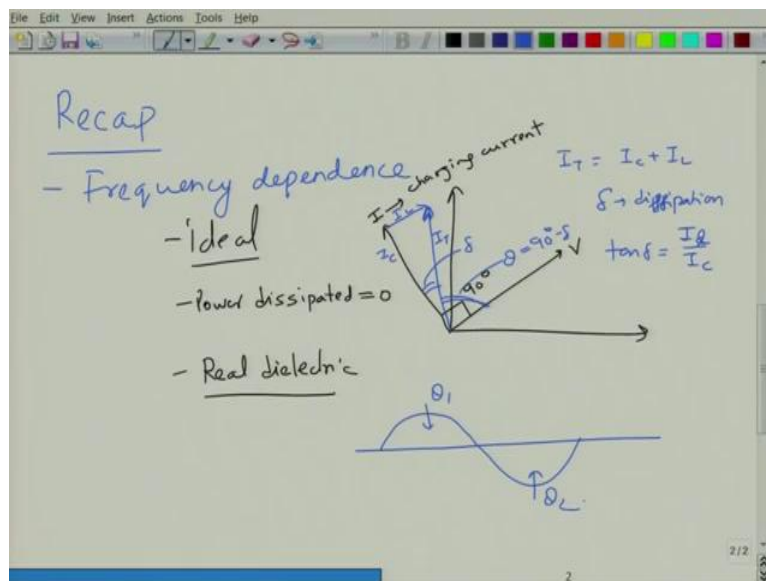 File Edit View Insert Actions Tools Help
B I
Recap
- Frequency dependence
- ideal
- Power dissipated = 0
- Real dielectric
I → charging current
I_C
I_T
δ
90°
θ = 90° - δ
V
I_T = I_C + I_L
δ → dissipation
tan δ = I_L / I_C
Q1
Q2
2/2
2